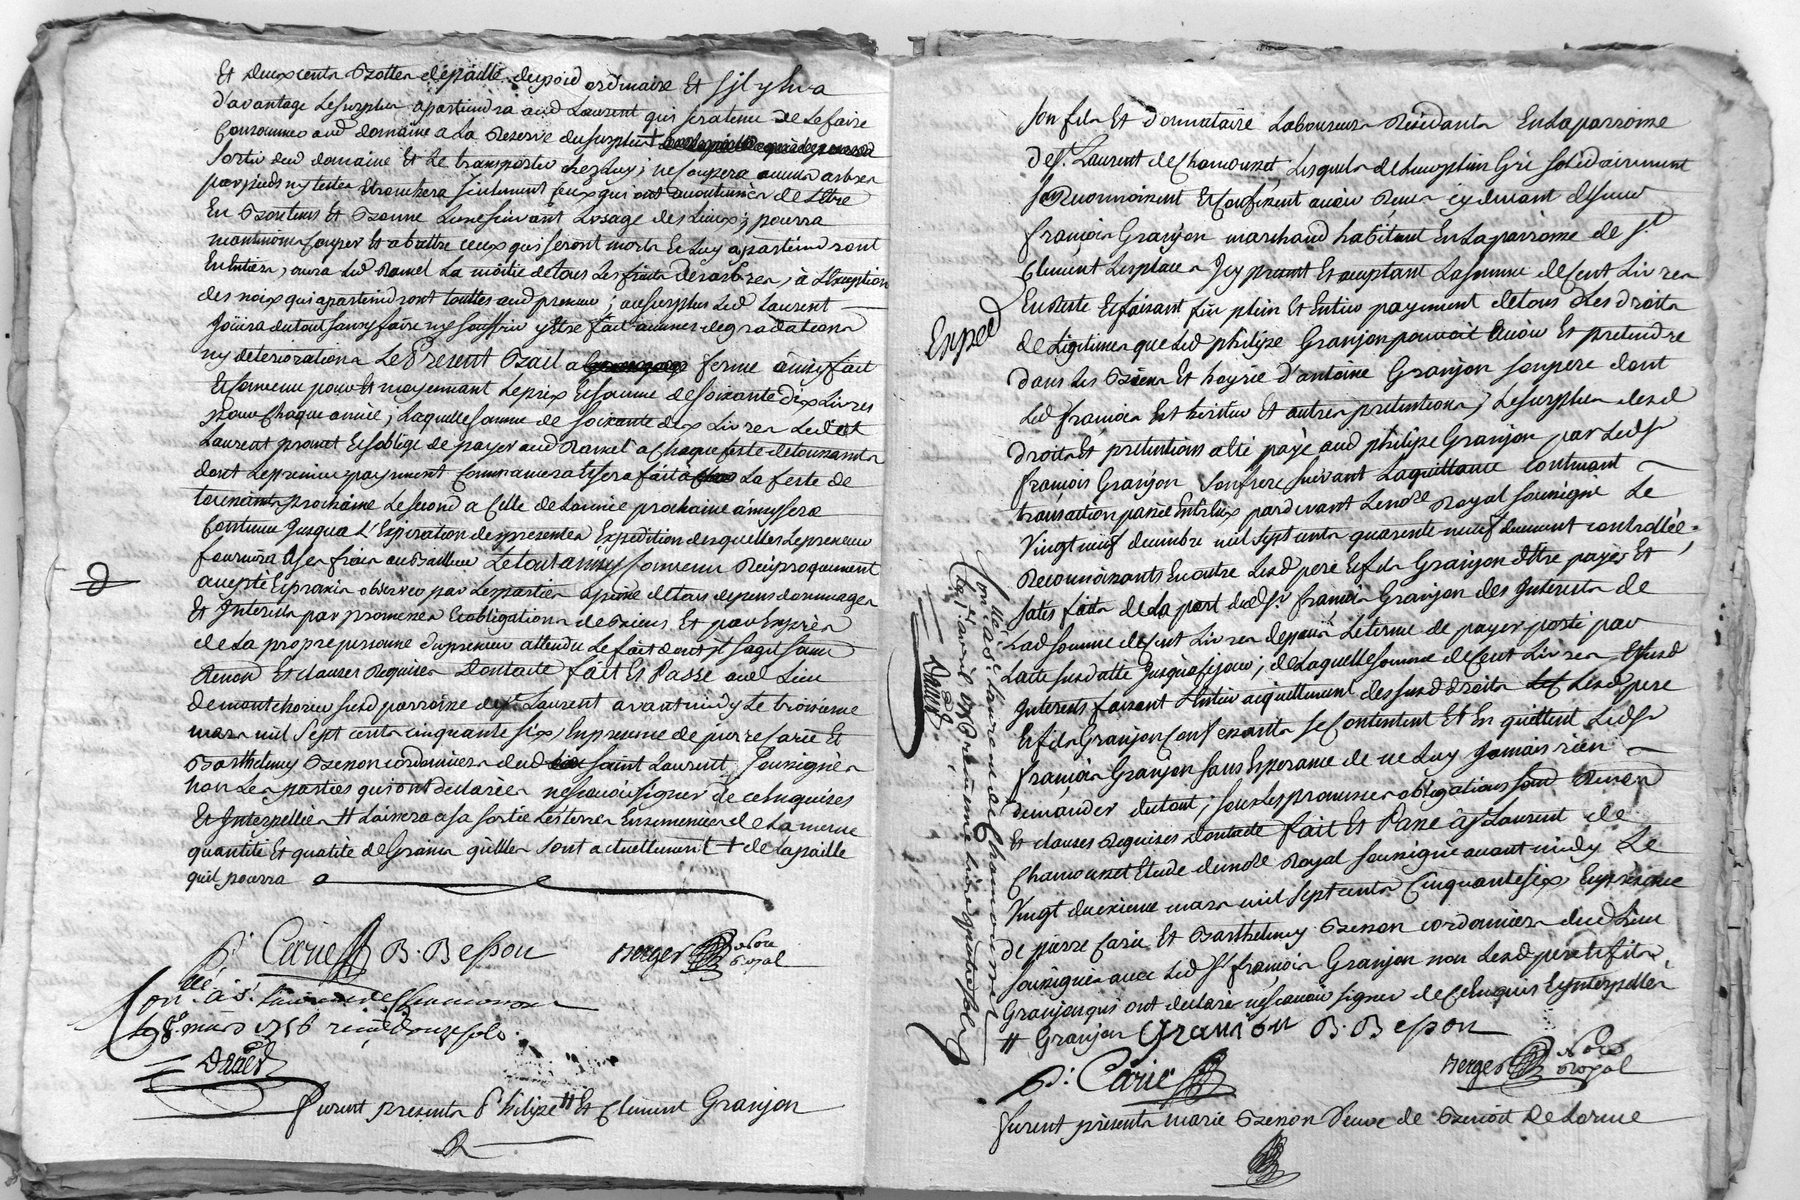 Et deux cents Bottes de paille du poid ordinaire Et s'il y hua
d'avantage Le surplus apartiendra aud Laurent qui sera tenu de Le faire
Consommer aud domaine a La Reserve du surplus +
sortir dud domaine Et Le transporter chez Luy ; ne Coupera aucuns arbres
par pieds ny testes Etronchera seulement ceux qui ont accoutumés de L'Etre
En Bon tems Et Bonne Lune suivant L'usage des Lieux ; pourra
neantmoins Couper Et abattre ceux qui seront morts Et Luy apartiendront
En Entier, aura Led Ramel La moitié de tous Les fruits des arbres, à L'Exception
des noix qui apartiendront touttes aud preneur ; au surplus Led Laurent
Joüira du tout sans y faire ny souffrir y Etre fait aucunes degradations
ny deteriorations Le Present Bail a ferme ainsy fait
Et Convenu pour Et moyennant Le prix Et somme de soixante dix Livres
pour Chaque année ; Laquelle somme de soixante dix Livres Ledit
Laurent promet Et s'oblige de payer aud Ramel a Chaque feste de toussaints
dont Le premier payement Commancera Et sera fait à La feste de
toussaints prochaine Le second a Celle de L'année prochaine ainsy sera
Continué Jusqua L'Expiration des presentes Expedition desquelles Le preneur
fournira a ses frais au Bailleur Le tout ainsy Convenu Reciproquement
accepté Et promis observer par Les parties a peine de tous depens dommages
Et Interests par promesses Et obligations de Biens Et par Exprès
de La propre personne du preneur attendu Le fait dont il s'agit sous
Renon Et clauses Requises Dont acte fait Et Passé aud Lieu
de montchorier susd parroisse de St Laurent avant midy Le troisieme
mars mil sept cents cinquante six, En presence de pierre Carié Et
Barthelemy Besson cordonniers dud saint Laurent, soussignés
non Les parties qui ont declarées ne scavoir signer de ce Enquises
Et Interpellées # Laissera a sa sortie Les terres Ensemencées de La meme
quantité Et qualité de Grains qu'elles sont actuellement + de La paille
quil pourra
P. Carié B. Besson Berger Nore Royal
Conlé à St Laurent de Chamousset
Le 8e mars 1756 reçu douze sols
Furent presents Philipe # Et Clement Granjon
son fils Et Donnataire Laboureurs Residants En La parroisse
de St Laurent de Chamousset, Lesquels de Leur plein Gré solidairement
ont Reconnoissent Et Confessent avoir Receu cy devant de sieur
françois Granjon marchand habitant En La parroisse de St
Clément Les places Icy present Et acceptant La somme de Cent Livres
En Reste Et faisant fin plein Et Entier payement de tous Les droits
de Legitimes que Led philipe Granjon pouvoit Avoir Et pretendre
Dans Les Biens Et hoyrie d'antoine Granjon son pere dont
Led françois Est heritier Et autres pretentions, Le surplus desd
droits Et pretentions a Eté payé aud philipe Granjon par Led Sr
françois Granjon son frere suivant La quittance Contenant
transaction passée Entr'Eux pardevant Le nore Royal soussigné Le
Vingt neuf decembre mil sept cents quarente neuf deument controllée,
Reconnoissants En outre Lesd pere Et fils Granjon Estre payés Et
satisfaits de La part dud Sr françois Granjon des Interests de
Lad somme de Cent Livres Depuis Le terme de payer porté par
L'acte susdatté Jusqu'a ce jour ; de Laquelle somme de Cent Livres Et susd
Interests faisant L'Entier aquittement des susd droits Lesd pere
Et fils Granjon Confessants se Contentent Et En quittent Led Sr
françois Granjon sans Esperance de ne Luy Jamais rien
demander du tout ; sous Les promesses obligations sous Renon
Et clauses Requises dont acte fait Et Passé à St Laurent de
Chamousset Etude du nore Royal soussigné avant midy Le
Vingt deuxieme mars mil sept cents Cinquante six, En presence
de pierre Carié Et Barthelemy Besson cordonniers dud Lieu
soussignés avec Led Sr françois Granjon non Lesd pere Et fils
Granjon qui ont declaré ne scavoir signer de ce Enquis Et Interpellés
# Granjon Granjon B. Besson
P. Carié Berger Nore Royal
Furent présents marie Besson Veuve de Benoit De Lorme
Exped
Conlé à St Laurent de Chamousset
Le 1er avril 1756 Reçu